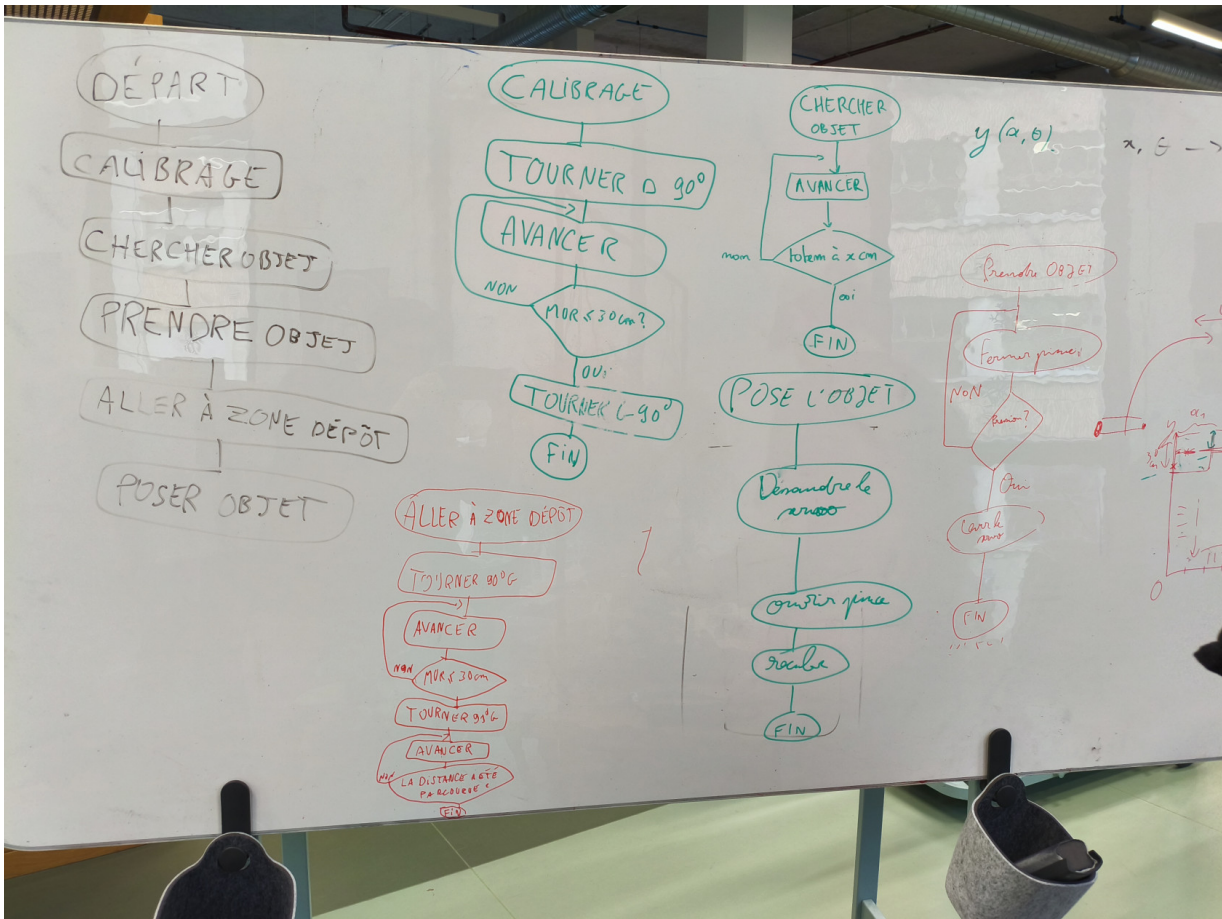 DÉPART
CALIBRAGE
CHERCHER OBJET
PRENDRE OBJET
ALLER À ZONE DÉPÔT
POSER OBJET
CALIBRAGE
TOURNER D 90°
AVANCER
NON
MUR ≤ 30cm?
OUi
TOURNER G 90°
FiN
ALLER À ZONE DÉPÔT
TOURNER 90°G
AVANCER
NON
MUR ≤ 30cm
TOURNER 90°G
AVANCER
NON
LA DISTANCE A ÉTÉ
PARCOURUE?
FiN
CHERCHER
OBJET
AVANCER
non
totem à x cm
oui
FIN
POSE L'OBJET
ouvrir pince
reculer
FIN
y(x, θ)
x, θ →
Prendre OBJET
Fermer pince
NON
Oui
FIN
y
0